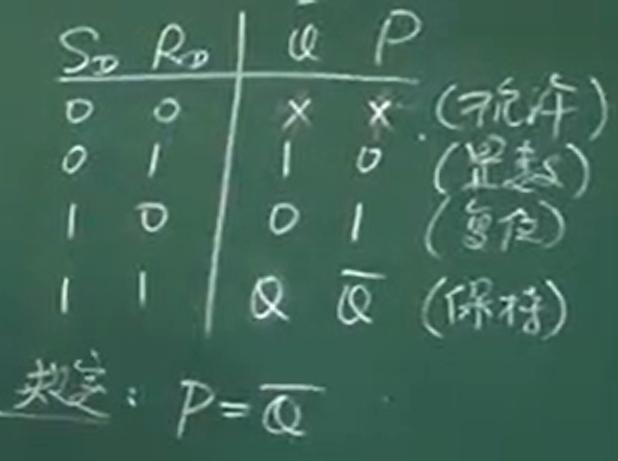 S_D R_D Q P
0 0 × × (不允许)
0 1 1 0 (置数)
1 0 0 1 (复位)
1 1 Q Q̅ (保持)
规定: P = Q̅